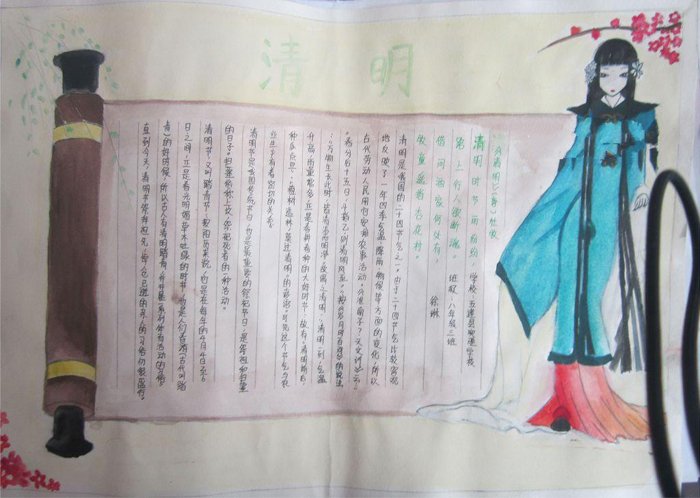 清明
《清明》(唐)杜牧
清明时节雨纷纷,学校:五莲县中至学校
路上行人欲断魂。班级:八年级二班
借问酒家何处有,徐琳
牧童遥指杏花村。
清明是我国的二十四节气之一。由于二十四节气比较客观
地反映了一年四季气温、降雨、物候等方面的变化,所以
古代劳动人民用它安排农事活动。《淮南子·天文训》云:
“春分后十五日,斗指乙,则清明风至。”按《岁时百问》的说法:
“万物生长此时,皆清洁而明净。故谓之清明。”清明一到,气温
升高,雨量增多,正是春耕春种的大好时节。故有“清明前后,
种瓜点豆”、“植树造林,莫过清明”的农谚。可见这个节气与农
业生产有着密切的关系。
清明节是我国传统节日,也是最重要的祭祀节日,是祭祖和扫墓
的日子。扫墓俗称上坟,祭祀死者的一种活动。
清明节,又叫踏青节,按阳历来说,它是在每年的4月4日至6
日之间,正是春光明媚草木吐绿的时节,也是人们春游(古代叫踏
青)的好时候,所以古人有清明踏青,并开展一系列体育活动的习俗。
直到今天,清明节祭拜祖先,悼念已逝的亲人的习俗仍很盛行。